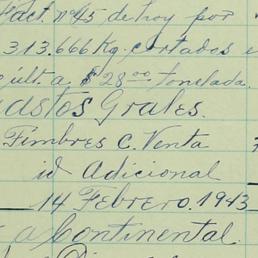 Fact. nº 45 de hoy por
313.666 Kg. cortados e
últ. a $ 28.00 tonelada.
Gastos Grales.
Timbres C. Venta
id Adicional
14 Febrero. 1943
a Continental.